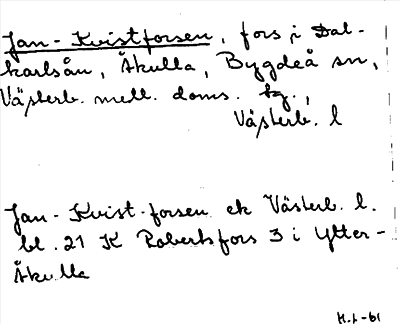 Jan-Kvistforsen, fors i Dal-
karlsån, Åkulla, Bygdeå sn,
Västerb. mell. doms. tg.,
Västerb. l
Jan-Kvist-forsen ek Västerb. l.
bl. 21 K Robertsfors 3 i Ytter-
Åkulla